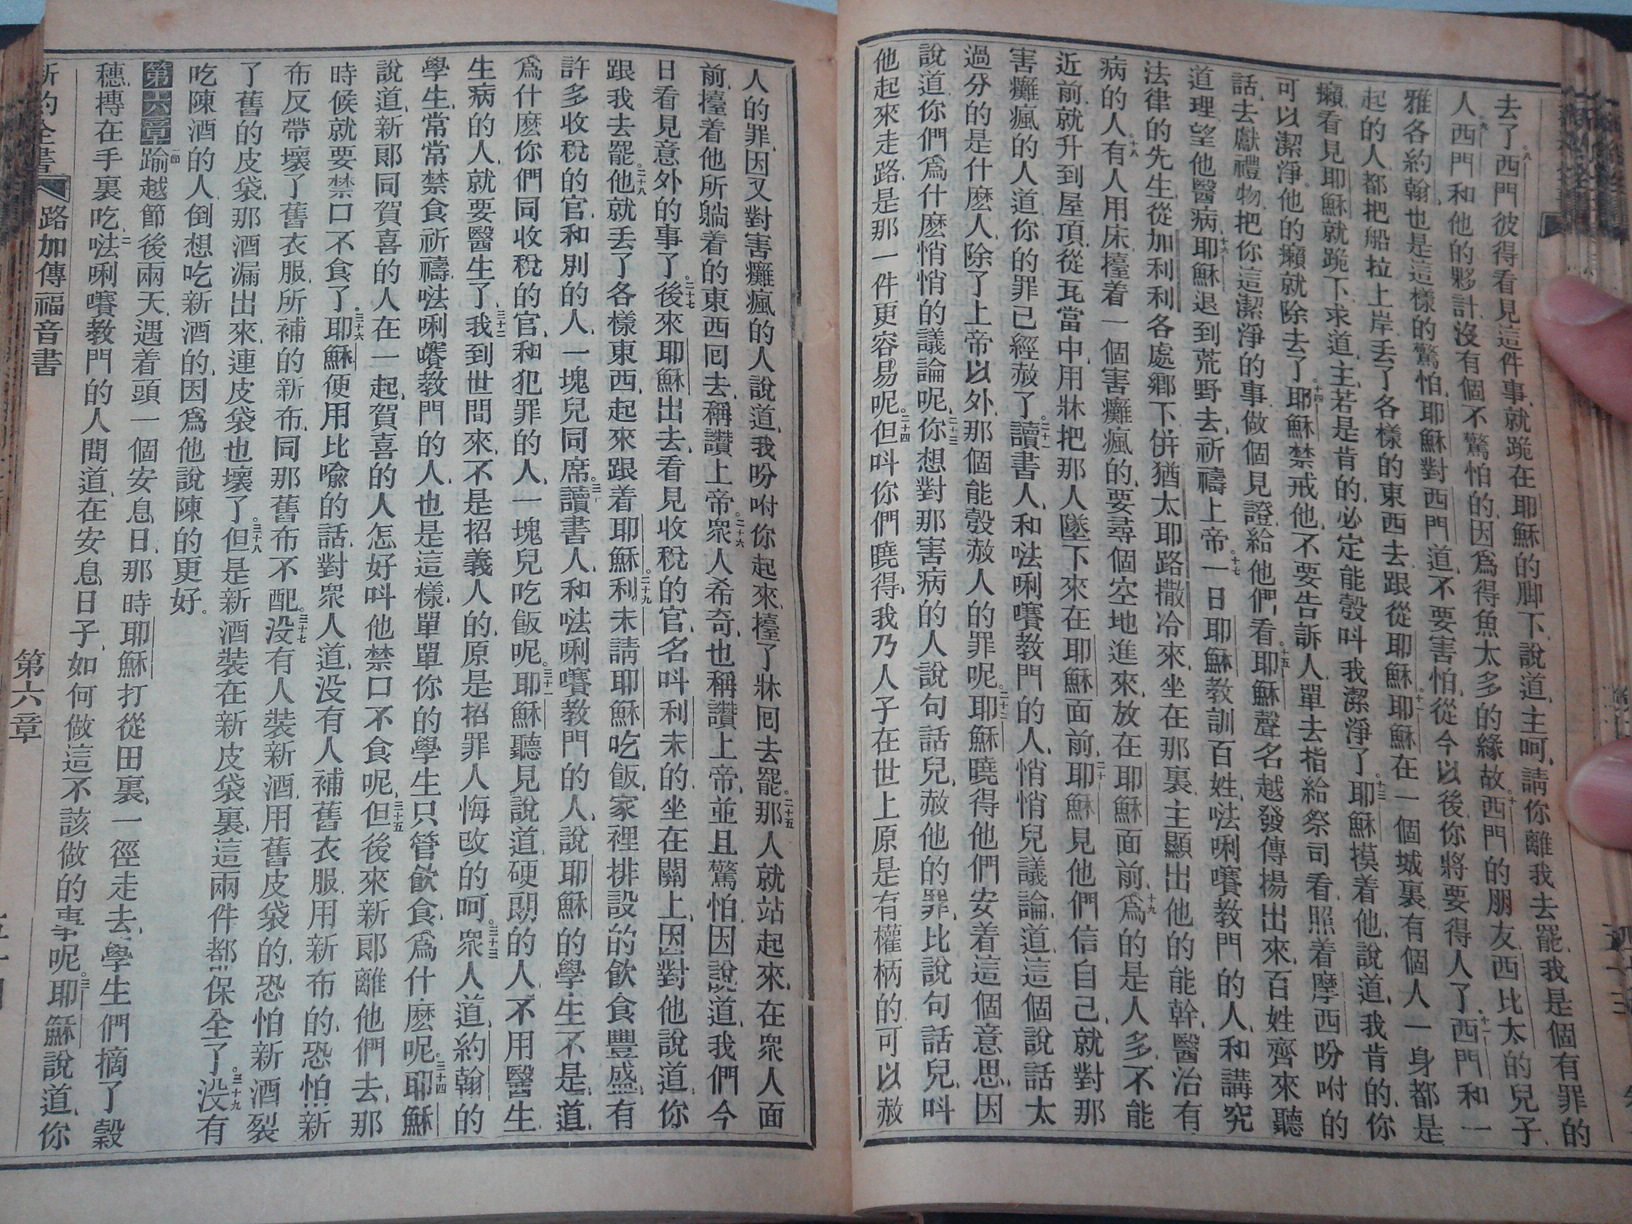 去了西門彼得看見這件事就跪在耶穌的脚下說道主呵請你離我去罷我是個有罪的
人西門和他的夥計沒有個不驚怕的因爲得魚太多的緣故西門的朋友西比太的兒子
雅各約翰也是這樣的驚怕耶穌對西門道不要害怕從今以後你將要得人了西門和一
起的人都把船拉上岸丟了各樣的東西去跟從耶穌耶穌在一個城裏有個人一身都是
癩看見耶穌就跪下求道主若是肯的必定能彀呌我潔淨了耶穌摸着他說道我肯的你
可以潔淨他的癩就除去了耶穌禁戒他不要告訴人單去指給祭司看照着摩西吩咐的
話去獻禮物把你這潔淨的事做個見證給他們看耶穌聲名越發傳揚出來百姓齊來聽
道理望他醫病耶穌退到荒野去祈禱上帝一日耶穌教訓百姓㳒唎嚽教門的人和講究
法律的先生從加利利各處鄉下併猶太耶路撒冷來坐在那裏主顯出他的能幹醫治有
病的人有人用床擡着一個害癱瘋的要尋個空地進來放在耶穌面前爲的是人多不能
近前就升到屋頂從瓦當中用牀把那人墜下來在耶穌面前耶穌見他們信自己就對那
害癱瘋的人道你的罪已經赦了讀書人和㳒唎嚽教門的人悄悄兒議論道這個說話太
過分的是什麽人除了上帝以外那個能彀赦人的罪呢耶穌曉得他們安着這個意思因
說道你們爲什麽悄悄的議論呢你想對那害病的人說句話兒赦他的罪比說句話兒呌
他起來走路是那一件更容易呢但呌你們曉得我乃人子在世上原是有權柄的可以赦
人的罪因又對害癱瘋的人說道我吩咐你起來擡了牀囘去罷那人就站起來在衆人面
前擡着他所躺着的東西囘去稱讚上帝衆人希奇也稱讚上帝並且驚怕因說道我們今
日看見意外的事了後來耶穌出去看見收稅的官名呌利未的坐在關上因對他說道你
跟我去罷他就丟了各樣東西起來跟着耶穌利未請耶穌吃飯家裡排設的飲食豐盛有
許多收稅的官和別的人一塊兒同席讀書人和㳒唎嚽教門的人說耶穌的學生不是道
爲什麽你們同收稅的官和犯罪的人一塊兒吃飯呢耶穌聽見說道硬朗的人不用醫生
生病的人就要醫生了我到世間來不是招義人的原是招罪人悔改的呵衆人道約翰的
學生常常禁食祈禱㳒唎嚽教門的人也是這樣單單你的學生只管飲食爲什麽呢耶穌
說道新郞同賀喜的人在一起賀喜的人怎好呌他禁口不食呢但後來新郞離他們去那
時候就要禁口不食了耶穌便用比喩的話對衆人道没有人補舊衣服用新布的恐怕新
布反帶壞了舊衣服所補的新布同那舊布不配没有人裝新酒用舊皮袋的恐怕新酒裂
了舊的皮袋那酒漏出來連皮袋也壞了但是新酒裝在新皮袋裏這兩件都保全了没有
吃陳酒的人倒想吃新酒的因爲他說陳的更好
第六章踰越節後兩天遇着頭一個安息日那時耶穌打從田裏一徑走去學生們摘了穀
穗摶在手裏吃㳒唎嚽教門的人問道在安息日子如何做這不該做的事呢耶穌說道你
新約全書 路加傳福音書 第六章